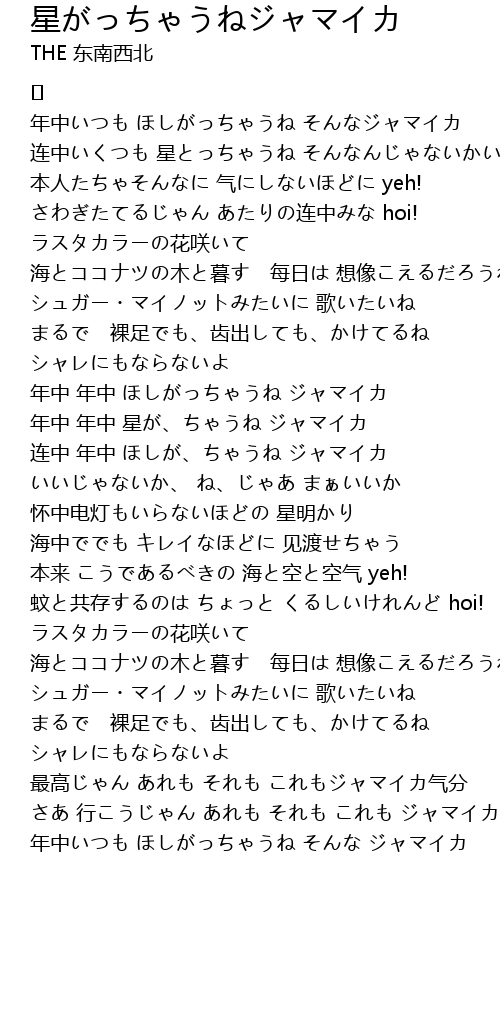 星がっちゃうねジャマイカ
THE 东南西北
[]
年中いつも ほしがっちゃうね そんなジャマイカ
连中いくつも 星とっちゃうね そんなんじゃないかい
本人たちゃそんなに 气にしないほどに yeh!
さわぎたてるじゃん あたりの连中みな hoi!
ラスタカラーの花咲いて
海とココナツの木と暮す　毎日は 想像こえるだろうね
シュガー・マイノットみたいに 歌いたいね
まるで　裸足でも、齿出しても、かけてるね
シャレにもならないよ
年中 年中 ほしがっちゃうね ジャマイカ
年中 年中 星が、ちゃうね ジャマイカ
连中 年中 ほしが、ちゃうね ジャマイカ
いいじゃないか、 ね、じゃあ まぁいいか
怀中电灯もいらないほどの 星明かり
海中ででも キレイなほどに 见渡せちゃう
本来 こうであるべきの 海と空と空气 yeh!
蚊と共存するのは ちょっと くるしいけれんど hoi!
ラスタカラーの花咲いて
海とココナツの木と暮す　毎日は 想像こえるだろうね
シュガー・マイノットみたいに 歌いたいね
まるで　裸足でも、齿出しても、かけてるね
シャレにもならないよ
最高じゃん あれも それも これもジャマイカ气分
さあ 行こうじゃん あれも それも これも ジャマイカ
年中いつも ほしがっちゃうね そんな ジャマイカ